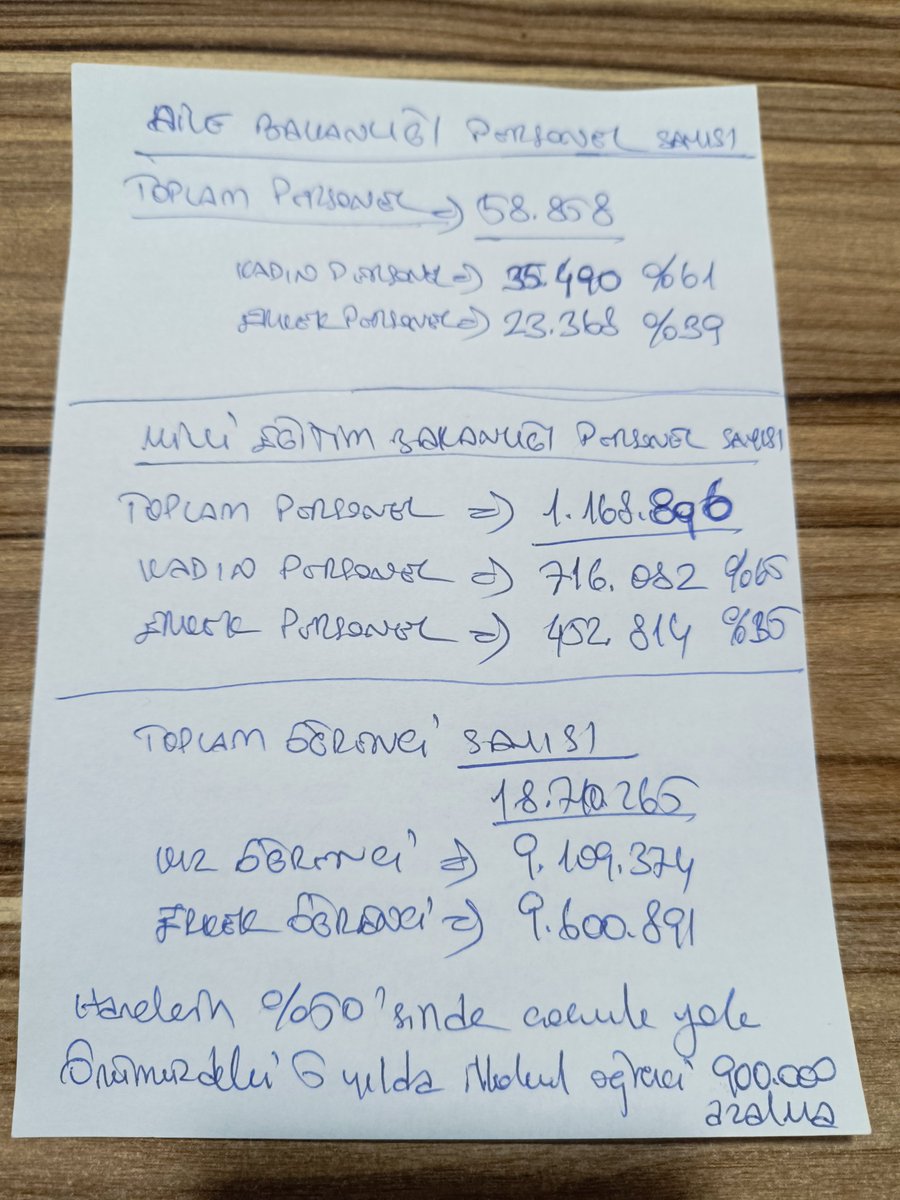 AİLE BAKANLIĞI PERSONEL SAYISI
TOPLAM PERSONEL => 58.858
KADIN PERSONEL => 35.490 %61
ERKEK PERSONEL => 23.368 %39
MİLLİ EĞİTİM BAKANLIĞI PERSONEL SAYISI
TOPLAM PERSONEL => 1.168.896
KADIN PERSONEL => 716.082 %65
ERKEK PERSONEL => 452.814 %35
TOPLAM ÖĞRENCİ SAYISI
18.710.265
KIZ ÖĞRENCİ => 9.109.374
ERKEK ÖĞRENCİ => 9.600.891
Hanelerin %50'sinde çocuk yok
Önümüzdeki 5 yılda ilkokul öğrenci 900.000
azalma